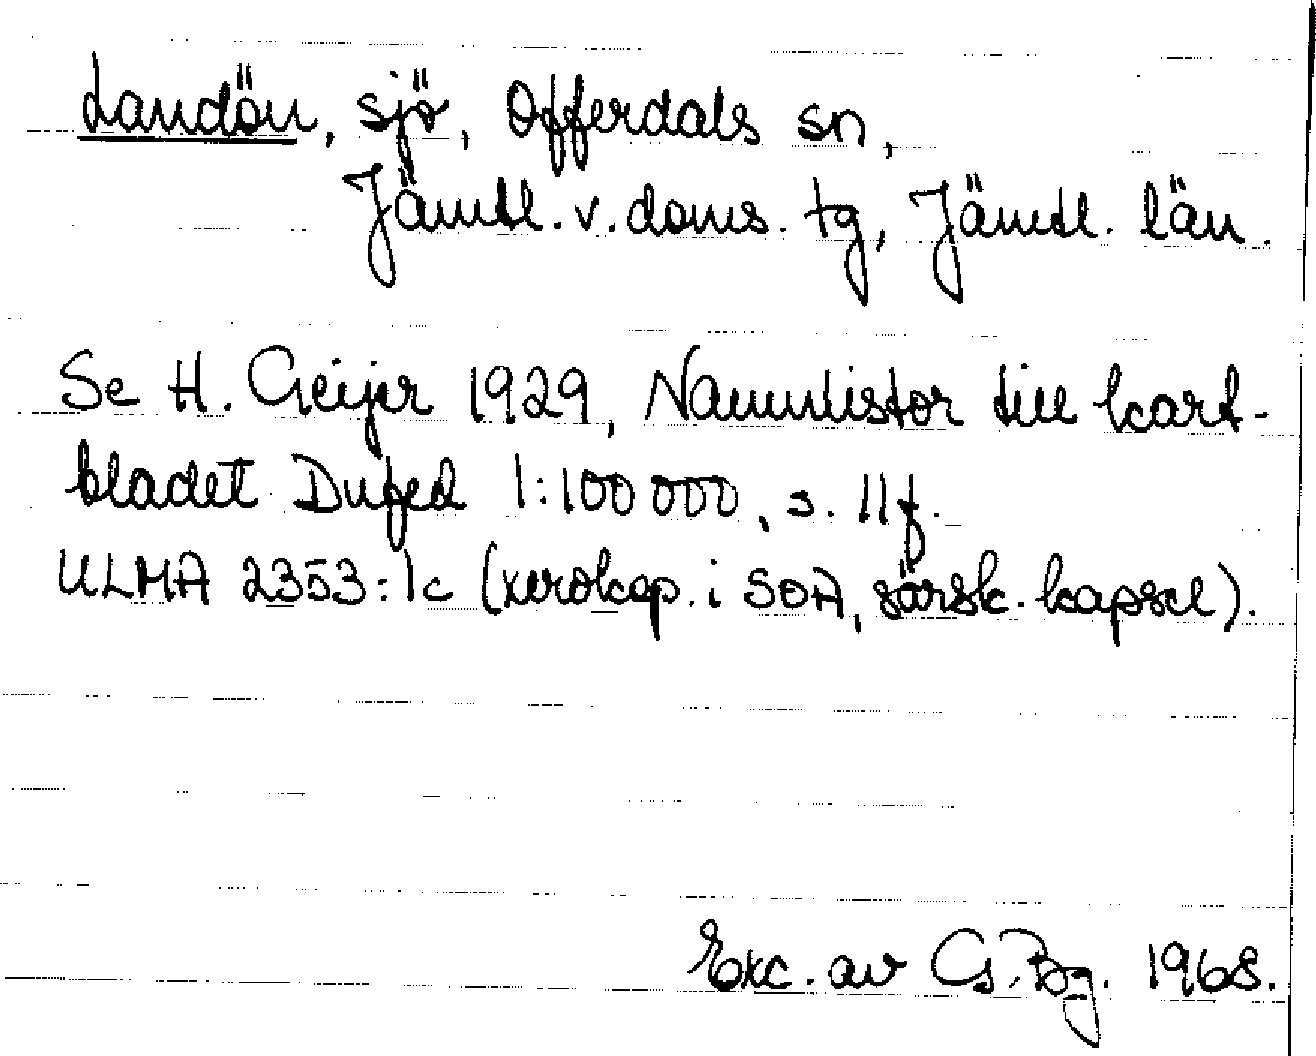 Landön, sjö, Offerdals sn,
Jämtl. v. doms. tg, Jämtl. län.
Se H. Geijer 1929, Namnlistor till kart-
bladet Dufed 1:100 000, s. 11 f.
ULMA 2353:1c (xerokop. i SOA, särsk. kapsel).
Exc. av G. Bg. 1968.